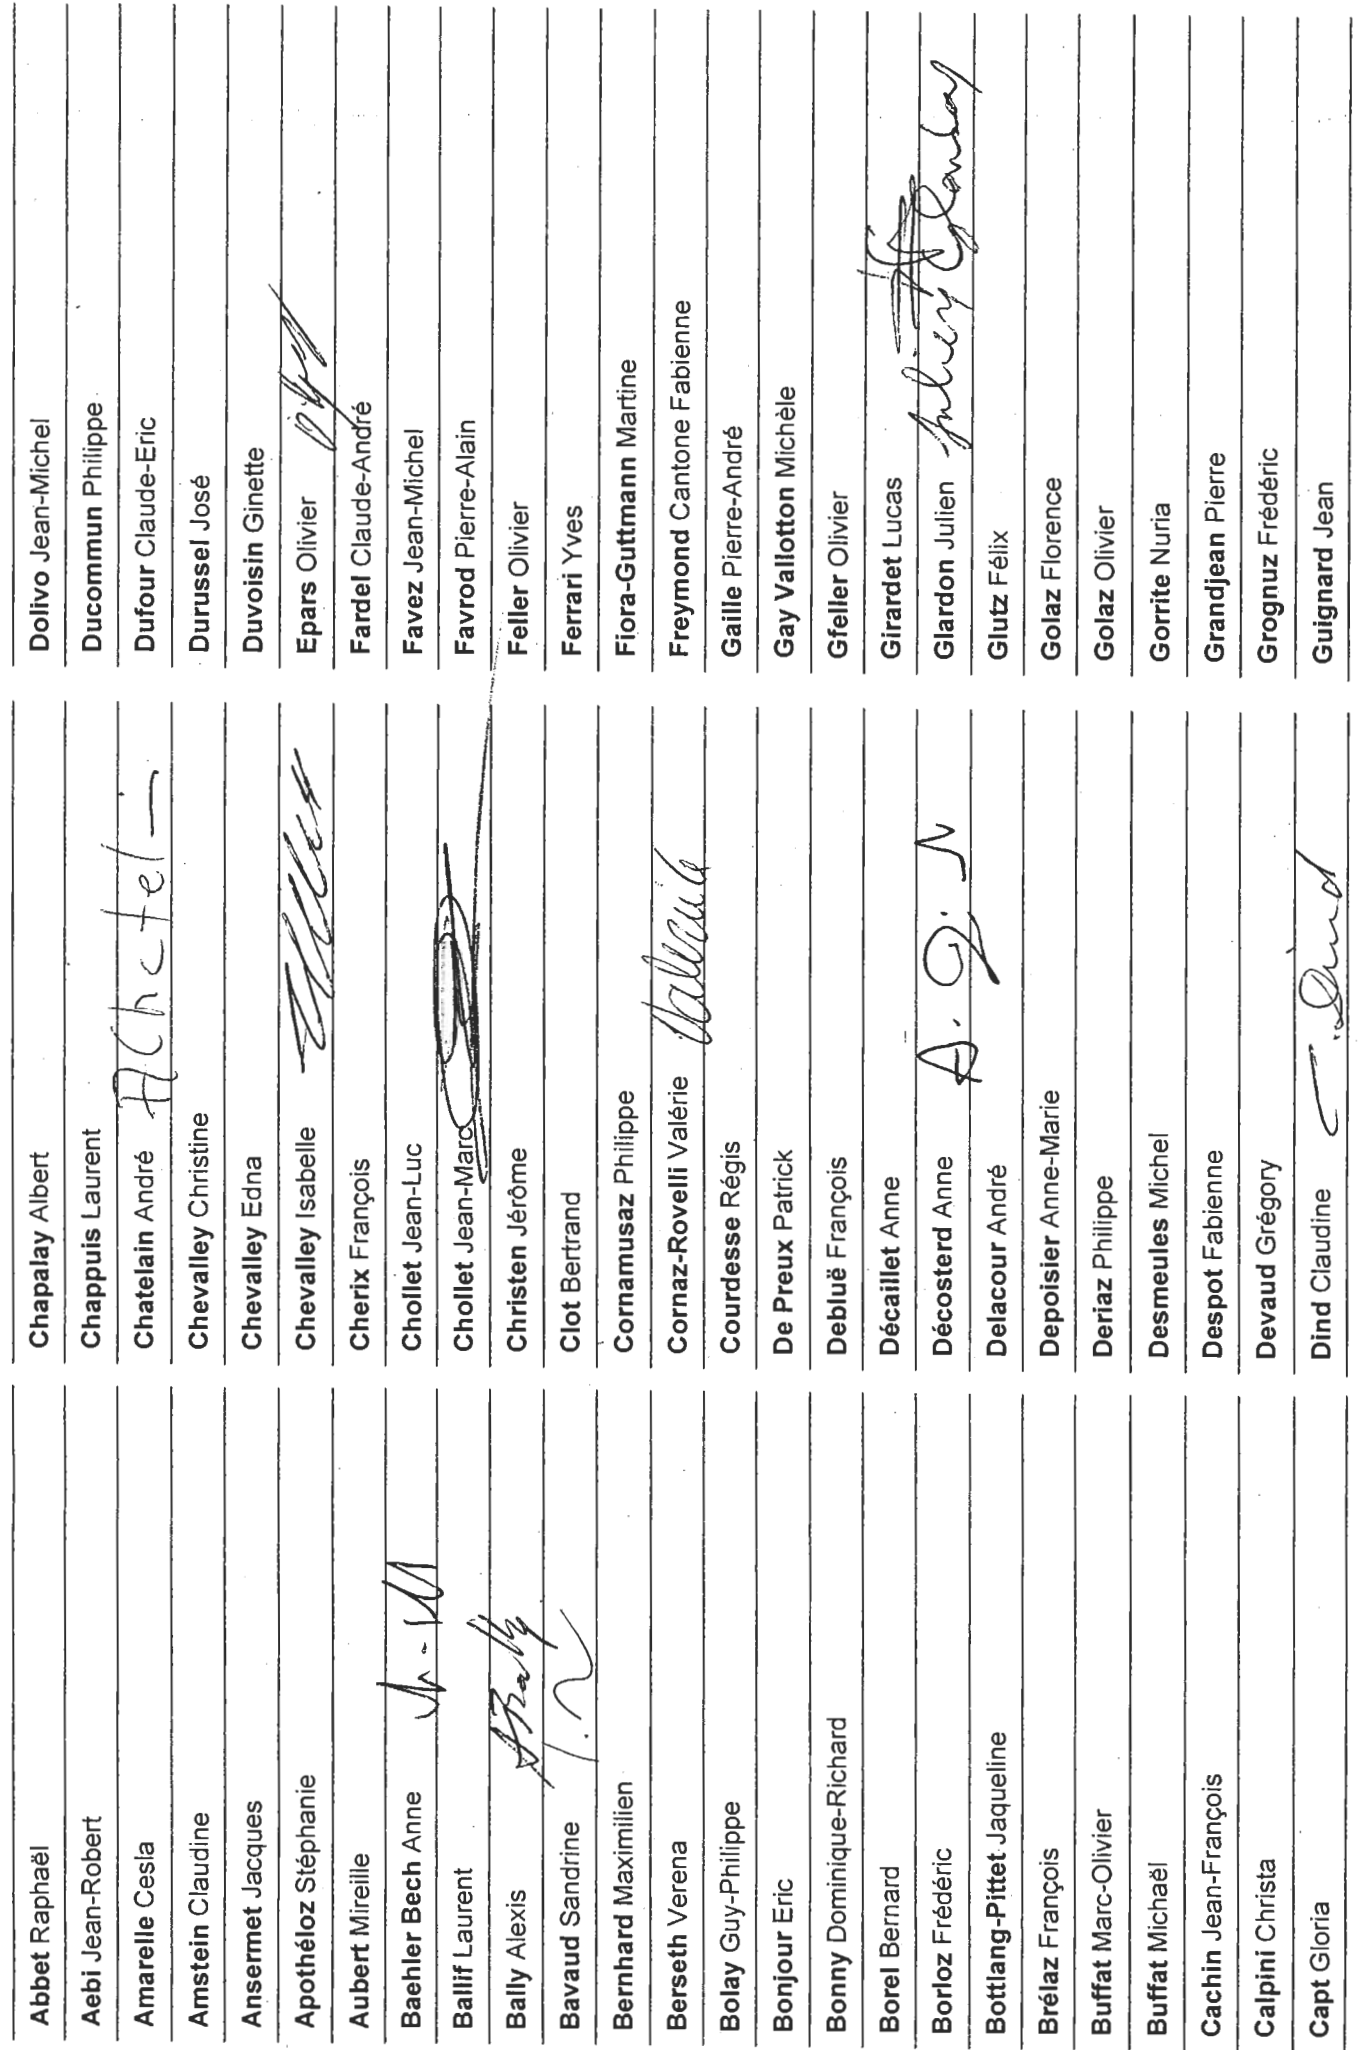 Abbet Raphaël
Aebi Jean-Robert
Amarelle Cesla
Amstein Claudine
Ansermet Jacques
Apothéloz Stéphanie
Aubert Mireille
Baehler Bech Anne
Ballif Laurent
Bally Alexis ABally
Bavaud Sandrine
Bernhard Maximilien
Berseth Verena
Bolay Guy-Philippe
Bonjour Eric
Bonny Dominique-Richard
Borel Bernard
Borloz Frédéric
Bottlang-Pittet Jaqueline
Brélaz François
Buffat Marc-Olivier
Buffat Michaël
Cachin Jean-François
Calpini Christa
Capt Gloria
Chapalay Albert
Chappuis Laurent
Chatelain André
Chevalley Christine
Chevalley Edna
Chevalley Isabelle
Cherix François
Chollet Jean-Luc
Chollet Jean-Marc
Christen Jérôme
Clot Bertrand
Cornamusaz Philippe
Cornaz-Rovelli Valérie
Courdesse Régis
De Preux Patrick
Debluë François
Décaillet Anne
Décosterd Anne
Delacour André
Depoisier Anne-Marie
Deriaz Philippe
Desmeules Michel
Despot Fabienne
Devaud Grégory
Dind Claudine C. Dind
Dolivo Jean-Michel
Ducommun Philippe
Dufour Claude-Eric
Durussel José
Duvoisin Ginette
Epars Olivier
Fardel Claude-André
Favez Jean-Michel
Favrod Pierre-Alain
Feller Olivier
Ferrari Yves
Fiora-Guttmann Martine
Freymond Cantone Fabienne
Gaille Pierre-André
Gay Vallotton Michèle
Gfeller Olivier
Girardet Lucas
Glardon Julien Julien Glardon
Glutz Félix
Golaz Florence
Golaz Olivier
Gorrite Nuria
Grandjean Pierre
Grognuz Frédéric
Guignard Jean